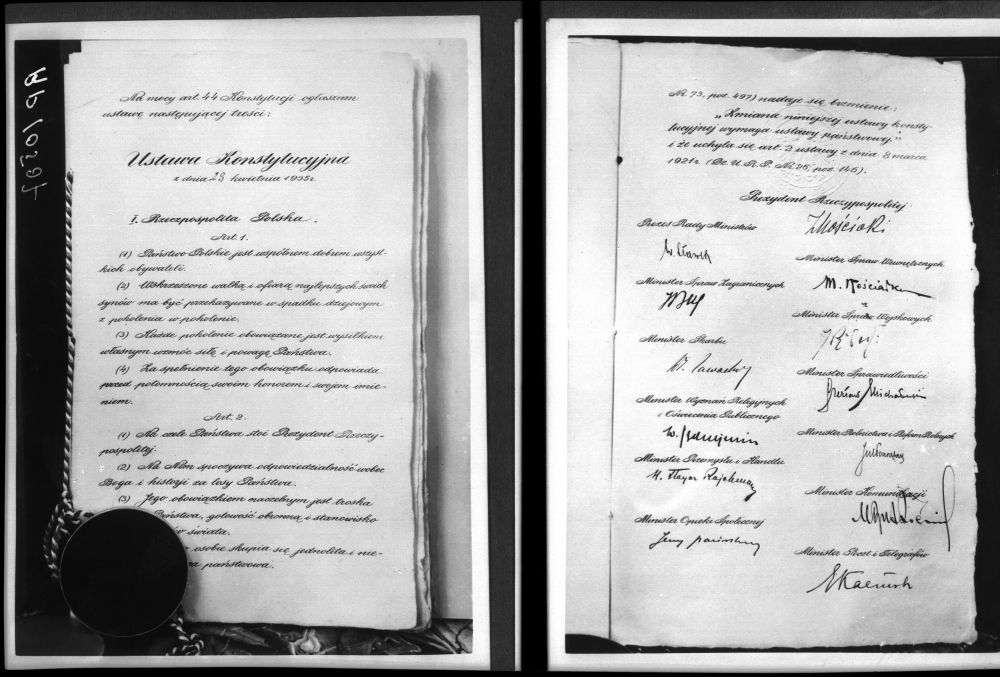 Na mocy art. 44 Konstytucji ogłaszam
ustawę następującej treści:
Ustawa Konstytucyjna
z dnia 23 kwietnia 1935 r.
I. Rzeczpospolita Polska.
Art. 1.
(1) Państwo Polskie jest wspólnem dobrem wszyst-
kich obywateli.
(2) Wskrzeszone walką i ofiarą najlepszych swoich
synów ma być przekazywane w spadku dziejowym
z pokolenia w pokolenie.
(3) Każde pokolenie obowiązane jest wysiłkiem
własnym wzmóc siłę i powagę Państwa.
(4) Za spełnienie tego obowiązku odpowiada
przed potomnością swoim honorem i swojem imie-
niem.
Art. 2.
(1) Na czele Państwa stoi Prezydent Rzeczy-
pospolitej.
(2) Na Nim spoczywa odpowiedzialność wobec
Boga i historji za losy Państwa.
(3) Jego obowiązkiem naczelnym jest troska
Państwa, gotowość obronną i stanowisko
świata.
osobie skupia się jednolita i nie-
państwowa.
Nr. 73, poz. 497) nadaje się brzmienie:
„Zmiana niniejszej ustawy konsty-
tucyjnej wymaga ustawy państwowej."
i że uchyla się art. 2 ustawy z dnia 8 marca
1921 r. (Dz. U. R. P. Nr. 26, poz. 146).
Prezydent Rzeczypospolitej
I Mościcki
Prezes Rady Ministrów
W Sławek
Minister Spraw Wewnętrznych
M. Kościałkowski
Minister Spraw Zagranicznych
Minister Spraw Wojskowych
Minister Skarbu
Minister Sprawiedliwości
Minister Wyznań Religijnych
i Oświecenia Publicznego
Minister Rolnictwa i Reform Rolnych
Minister Przemysłu i Handlu
H. Floyar Rajchman
Minister Komunikacji
Minister Opieki Społecznej
Minister Poczt i Telegrafów
EKaliński